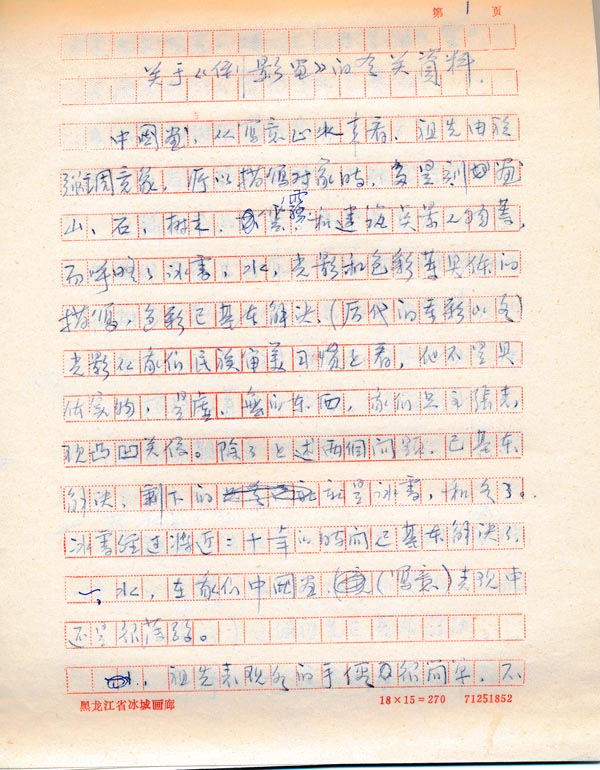 第 1 页
关于《倒影画》的有关资料.
中國画，从写意山水来看，祖先由于
强调意象，所以描绘对象时，多是刻画
山、石、树木、雲霧、和建筑 人物等，
而 了冰雪、水，光影和色彩等具体的
描绘，色彩已基本解决，(历代的重彩山水)
光影从我们民族审美习惯上看，他不是具
体实物，是虚、無的东西，我们只主張表
现凸凹关係。除了上述两個问题，已基本
解决，剩下的 就是冰雪，和水了。
冰雪经过将近二十年的时间已基本解决了，
一、水，在我们中國画、(写意)表现中
还是很落后。
祖先表现水的手 很简单，不
黑龙江省冰城画廊 18×15=270 71251852